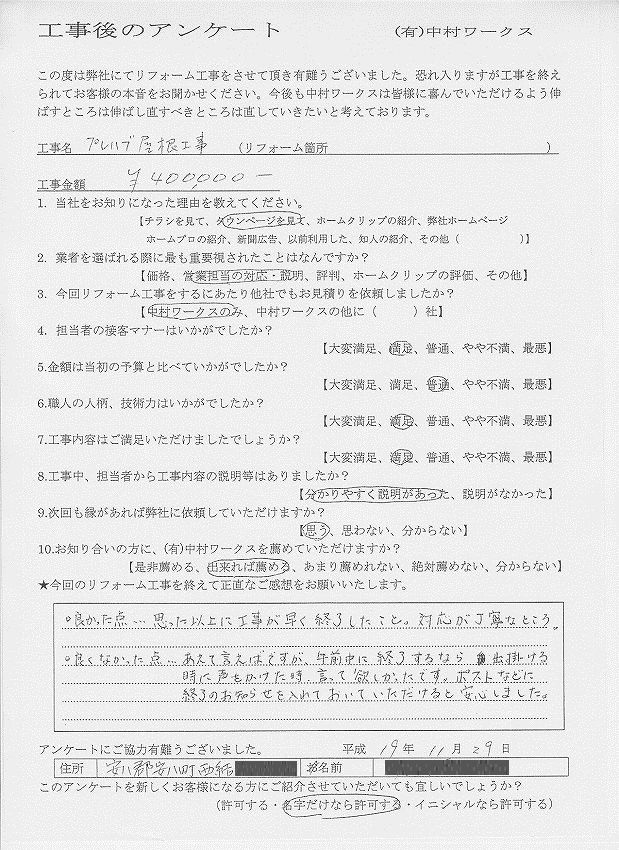 工事後のアンケート (有)中村ワークス
この度は弊社にてリフォーム工事をさせて頂き有難うございました。恐れ入りますが工事を終え
られてお客様の本音をお聞かせください。今後も中村ワークスは皆様に喜んでいただけるよう伸
ばすところは伸ばし直すべきところは直していきたいと考えております。
工事名 プレハブ屋根工事 (リフォーム箇所 )
工事金額 ¥400,000-
1. 当社をお知りになった理由を教えてください。
【チラシを見て、タウンページを見て、ホームクリップの紹介、弊社ホームページ
ホームプロの紹介、新聞広告、以前利用した、知人の紹介、その他( )】
2. 業者を選ばれる際に最も重要視されたことはなんですか?
【価格、営業担当の対応・説明、評判、ホームクリップの評価、その他】
3. 今回リフォーム工事をするにあたり他社でもお見積りを依頼しましたか?
【中村ワークスのみ、中村ワークスの他に( )社】
4. 担当者の接客マナーはいかがでしたか?
【大変満足、満足、普通、やや不満、最悪】
5.金額は当初の予算と比べていかがでしたか?
【大変満足、満足、普通、やや不満、最悪】
6.職人の人柄、技術力はいかがでしたか?
【大変満足、満足、普通、やや不満、最悪】
7.工事内容はご満足いただけましたでしょうか?
【大変満足、満足、普通、やや不満、最悪】
8.工事中、担当者から工事内容の説明等はありましたか?
【分かりやすく説明があった、説明がなかった】
9.次回も縁があれば弊社に依頼していただけますか?
【思う、思わない、分からない】
10.お知り合いの方に、(有)中村ワークスを薦めていただけますか?
【是非薦める、出来れば薦める、あまり薦めれない、絶対薦めない、分からない】
★今回のリフォーム工事を終えて正直なご感想をお願いいたします。
○良かった点…思った以上に工事が早く終了したこと。対応が丁寧なところ。
○良くなかった点…あえて言えばですが、午前中に終了するなら 出掛ける
時に声をかけた時、言って欲しかったです。ポストなどに
終了のお知らせを入れておいていただけると安心しました。
アンケートにご協力有難うございました。 平成 19年 11月 29日
住所 安八郡安八町西結 お名前
このアンケートを新しくお客様になる方にご紹介させていただいても宜しいでしょうか?
(許可する・名字だけなら許可する・イニシャルなら許可する)